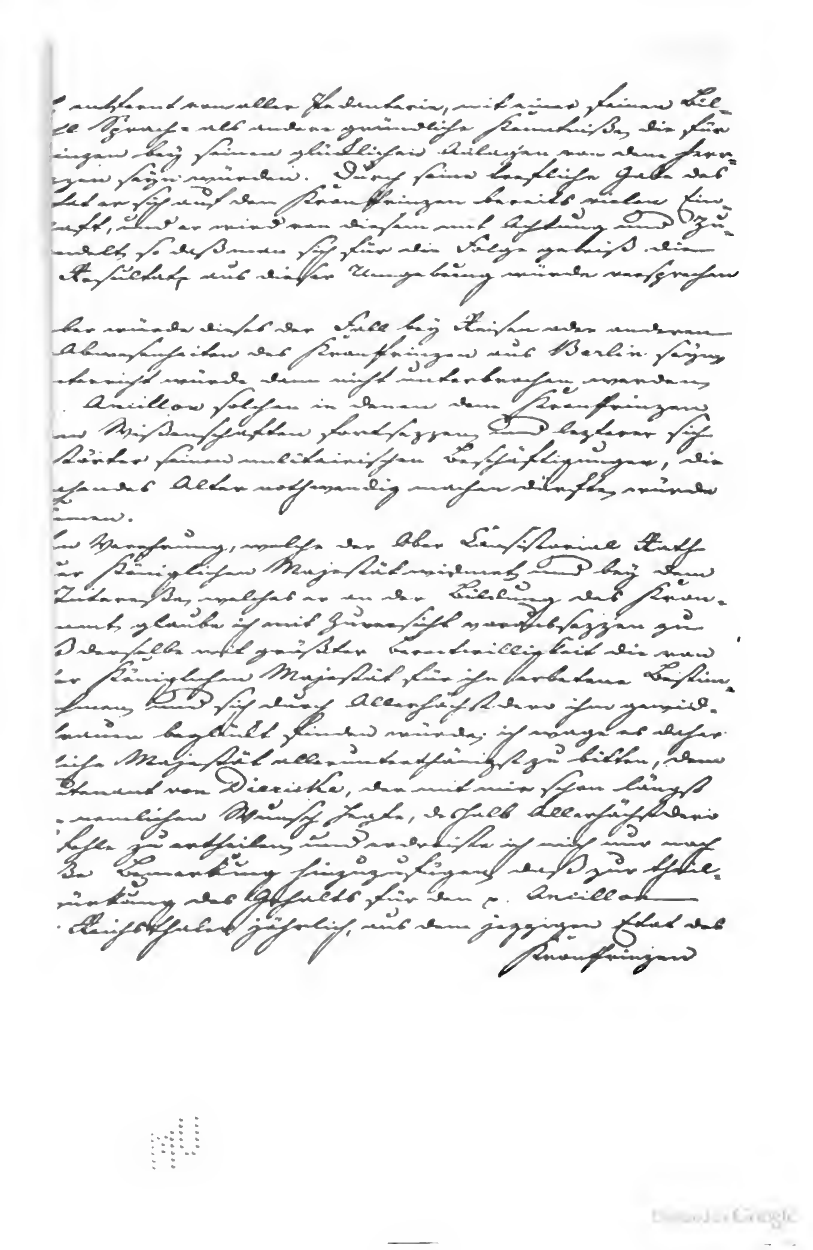 entfernt von aller Pedanterie, mit einer feinen Bil-
Sprach- als andere gründliche Kenntniße, die für
bey seinen glücklichen Anlagen von dem herr-
seyn würden. Durch seine treffliche Gabe des
hat er sich auf den Kronprinzen bereits vielen Ein-
und er wird von diesem mit Achtung und Zu-
so daß man sich für die Folge gewiß die
Resultate aus dieser Umgebung würde versprechen
ber würde dieses der Fall bey Reisen oder anderen
Abwesenheiten des Kronprinzen aus Berlin seyn,
terricht würde dann nicht unterbrochen werden,
Ancillon solchen in denen dem Kronprinzen
Wißenschaften fortsezzen, und lezterer sich
störter seinen militairischen Beschäftigungen, die
Alter nothwendig machen dürften, würde
Verehrung, welche der Ober Consistorial Rath
er Königlichen Majestät widmet, und bey dem
Interesse, welches er an der Bildung des Kron-
glaube ich mit Zuversicht voraussezzen zu
ß derselbe mit größter Bereitwilligkeit die von
er Königlichen Majestät für ihn erbetene Bestim-
und sich durch Allerhöchstdero ihm gewid-
trauen beglückt finden würde; ich wage es daher
liche Majestät allerunterthänigst zu bitten, dem
utenant von Diericke, der mit mir schon längst
nemlichen Wunsch hegte, deshalb Allerhöchstdero
fehle zu ertheilen, und erdreiste ich mich nur noch
Bemerkung hinzuzufügen, daß zur theil-
des Gehalts für den p. Ancillon
Reichsthaler jährlich, aus dem jezzigen Etat des
Kronprinzen
Google